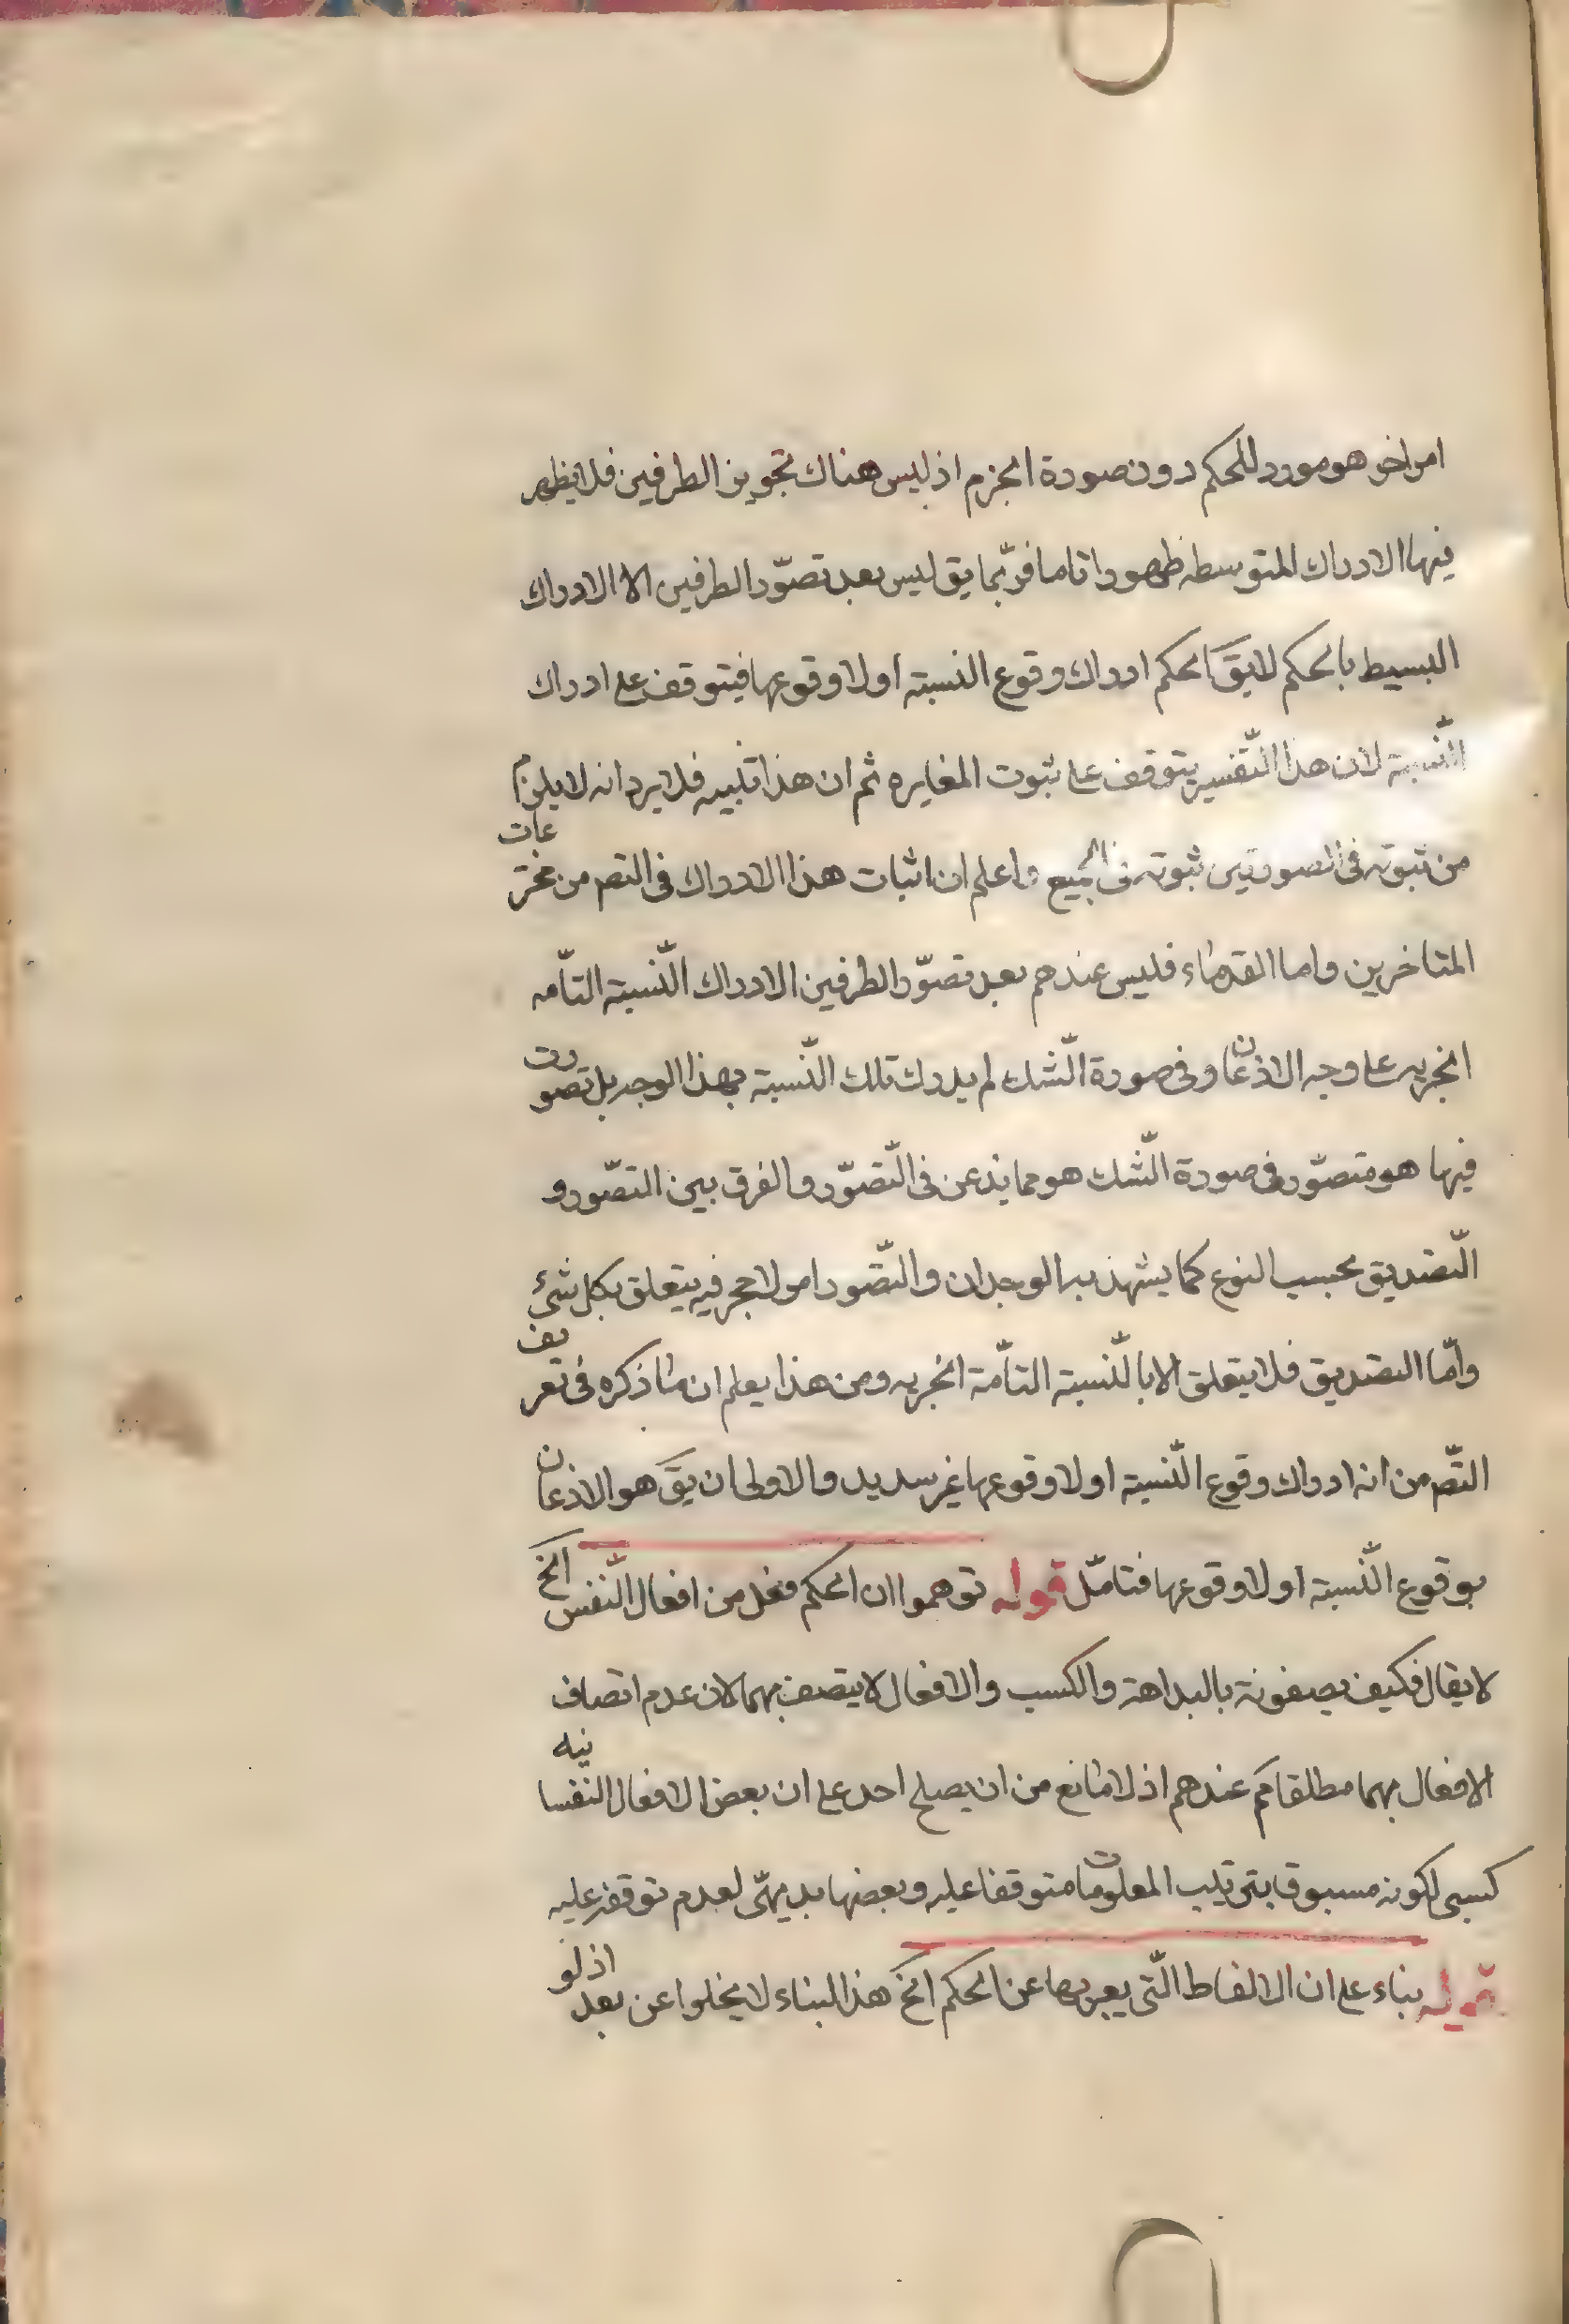 امر اخر هو مورد للحكم دون صورة الجزم اذ ليس هناك تجويز الطرفين فلا يظهر
فيها الادراك المتوسطه ظهورا تاما فربّما يق ليس بعد تصوّر الطرفين الا الادراك
البسيط بالحكم لا يق الحكم ادراك وقوع النسبته او لا وقوعها فيتوقف على ادراك
النّسبته لان هذا التّفسير يتوقف على ثبوت المغايره ثم ان هذا تنبيه فلا يرد انه لا يلزم
من ثبوته فى الصورتين ثبوته فى الجميع واعلم ان اثبات هذا الادراك فى التصم من مخترعات
المتاخرين واما القدماء فليس عندهم بعد تصوّر الطرفين الا ادراك النّسبته التاّمه
الخبريه على وجه الاذعان وفى صورة الشّك لم يدرك تلك النّسبة بهذا الوجه بل تصورت
فيها هو متصوّر فى صورة الشّك هو مما يذعن فى التّصوّر والفرق بين التصّور و
التّصديق بحسب النوع كما يشهد به الوجدان والتصّور امر لا حجر فيه يتعلق بكل شئ
وامّا التصديق فلا يتعلق الا بالنّسبته التاّمة الخبريه ومن هذا يعلم ان ما ذكره فى تعريف
التصّم من انه ادراك وقوع النّسبته او لا وقوعها غير سديد والاولى ان يق هو الاذعان
بوقوع النّسبته او لا وقوعها فتامّل قوله توهموا ان الحكم فعل من افعال النّفس الخ
لا يقال فكيف يصفونه بالبداهة والكسب والافعال لا يتصف بهما لان عدم اتصاف
الافعال بهما مطلقا كم عندهم اذ لا مانع من ان يصلح احد على ان بعض الافعال النفسانيه
كسبى لكونه مسبوقا بترتيب المعلومات متوقفا عليه وبعضها بديهىّ لعدم توقفه عليه
قوله بناء على ان الالفاظ الّتى يعبر بها عن الحكم الخ هذا البناء لا يخلوا عن بعد اذ لو